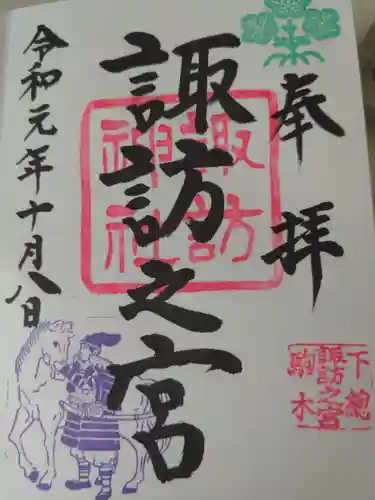 奉拝
諏訪之宮
諏訪
神社
令和元年十月八日
下総
諏訪之宮
駒木